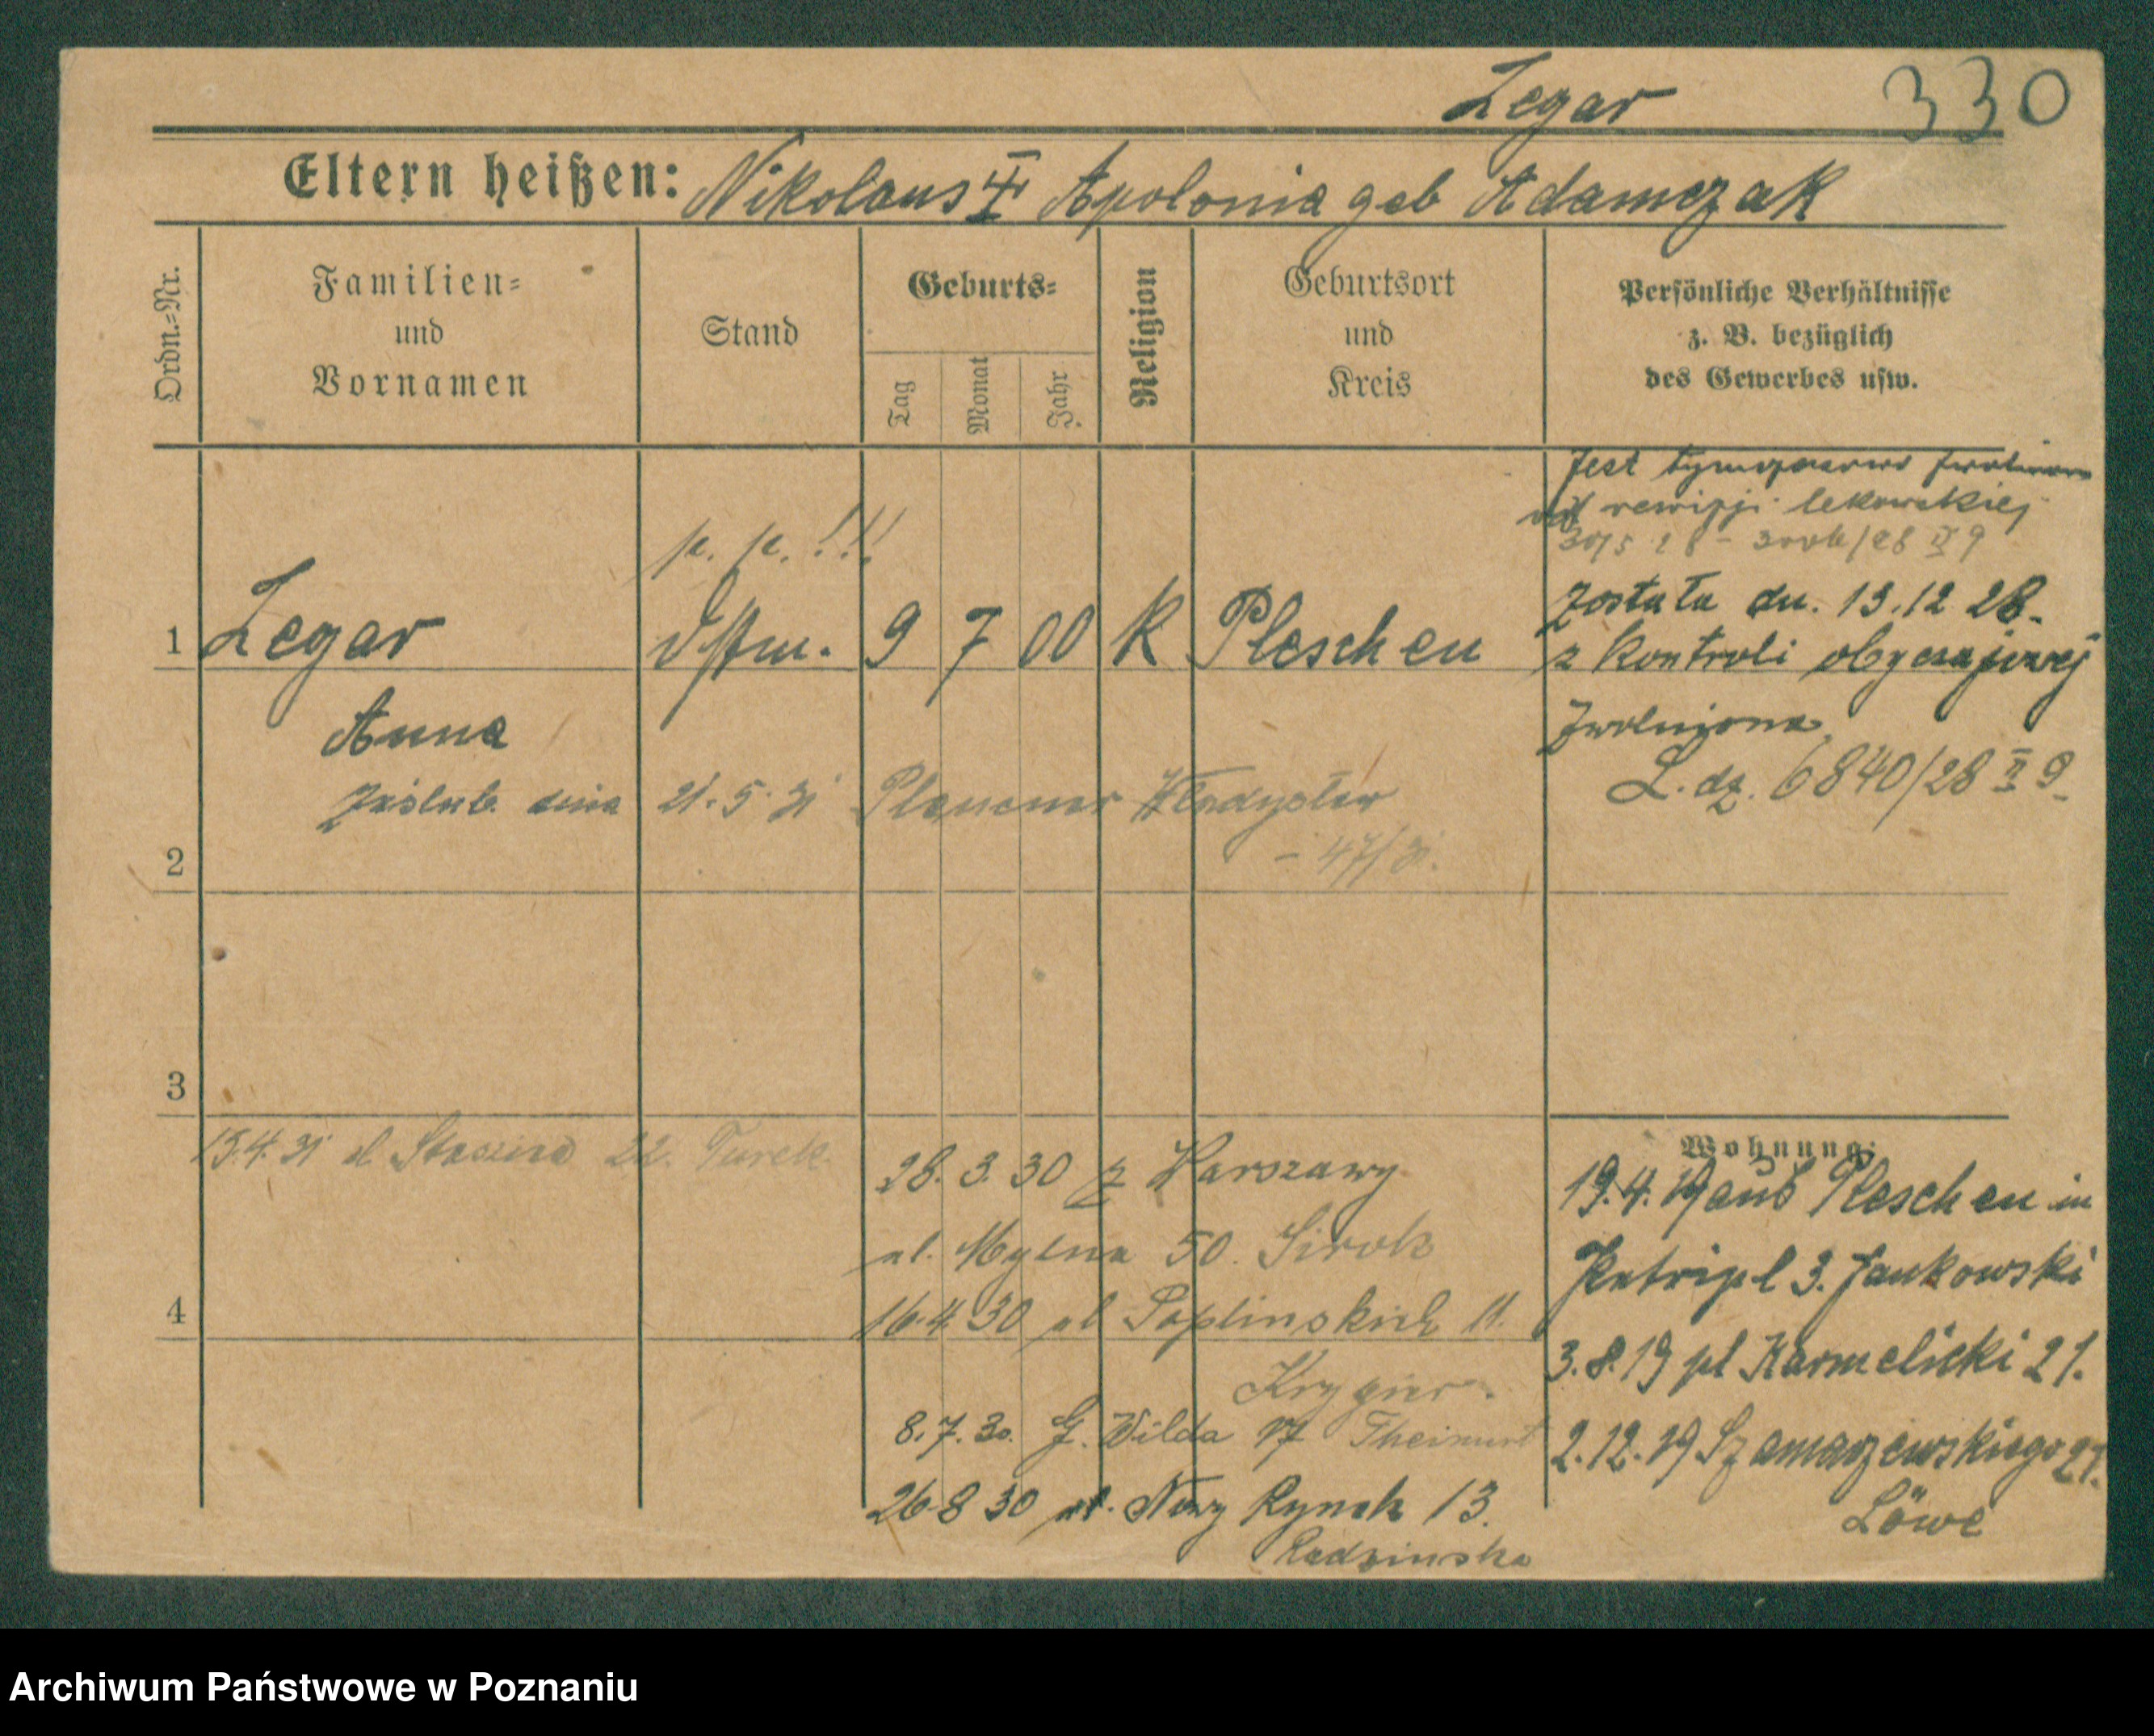 Zegar 330
Eltern heißen: Nikolaus + Apolonia geb Adamczak
Ordn.=Nr.
Familien=
und
Vornamen
Stand
Geburts=
Tag
Monat
Jahr
Religion
Geburtsort
und
Kreis
Persönliche Verhältnisse
z. B. bezüglich
des Gewerbes usw.
Jest tymczasowo zwolniona
od rewizji lekarskiej
p. p. !!!
została dn. 13.12 28.
1 Zegar 9 7 00 K Pleschen
z kontroli obyczajowej
Anna
zwolniona
L. dz. 6840/28 II 9
zaślub. dnia 21.5.31 Władysław
2
– 47/31.
3
Wohnung:
15.4.31 ul Staszica 22. Turek
28.3.30 z Warszawy
19.4.19 aus Pleschen in
ul. Mylna 50.
3. Jankowski
16.4 30 ul Poplinskich 11.
4
3.8.19 pl Karmelicki 21.
Krygier.
8.7.30. G. Wilda 17
2.12.19 Szamarzewskiego 21.
26 8 30 ul. Nowy Rynek 13.
Löwe
Radzinska
Archiwum Państwowe w Poznaniu